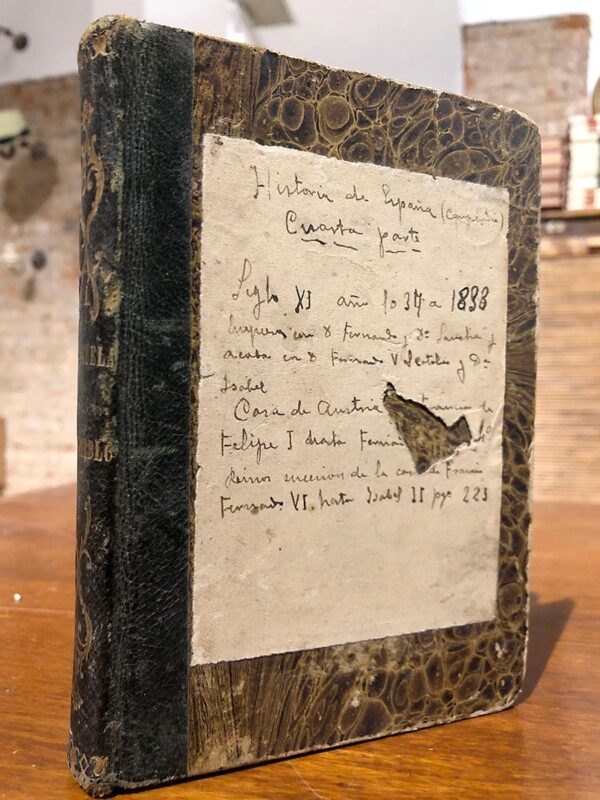 Historia de España (Compendio)
Cuarta parte
Siglo XI año 1037 a 1833
Empieza con D Fernando y Dª Sancha y
acaba con D Fernando V el Catolico y Dª
Isabel
Casa de Austria Francia de
Felipe I hasta
Reinos sucesion de la casa de Francia
Fernando VI hasta Isabel II pgª 223